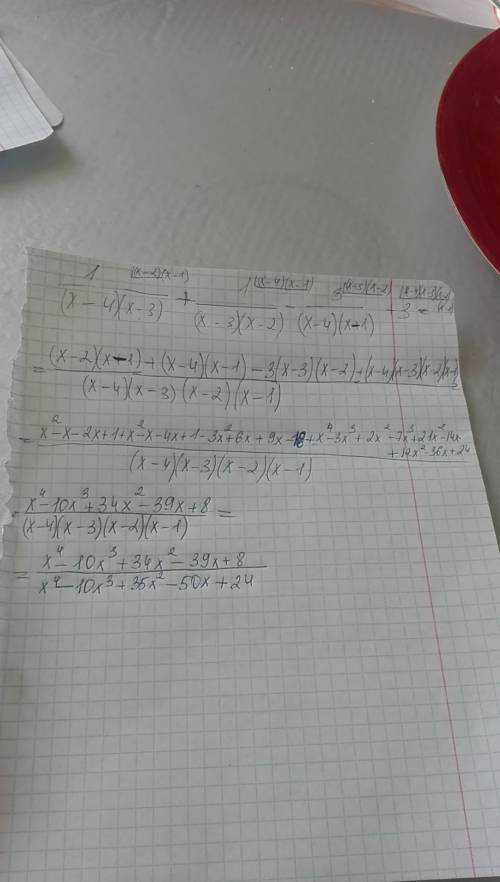 1 ((x-2)(x-1) 1((x-4)(x-1) 3(x-3)(x-2)
(x-4)(x-3) + (x-3)(x-2) - (x-4)(x-1) + 3 =
= (x-2)(x-1)+(x-4)(x-1)-3(x-3)(x-2)+(x-4)(x-3)(x-2)(x-1)
(x-4)(x-3)(x-2)(x-1)
= x²-x-2x+1+x²-x-4x+1-3x²+6x+9x-18+x⁴-3x³+2x²-7x³+21x²-14x
+12x²-36x+24
(x-4)(x-3)(x-2)(x-1)
x⁴-10x³+34x²-39x+8
(x-4)(x-3)(x-2)(x-1) =
= x⁴-10x³+34x²-39x+8
x⁴-10x³+35x²-50x+24